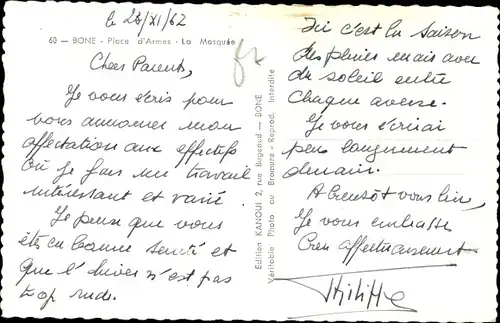 le 26/XI/62
60 — BONE - Place d'Armes - La Mosquée
Chers Parents,
Je vous écris pour
vous annoncer mon
affectation aux effectifs
où je fais un travail
intéressant et varié.
Je pense que vous
êtes en bonne santé et
que l'hiver n'est pas
trop rude.
Edition KANOUI 2, rue Bugeaud — BONE
Véritable Photo au Bromure - Reprod. Interdite
Ici c'est la saison
des pluies mais avec
du soleil entre
chaque averse.
Je vous écrirai
plus longuement
demain.
A bientôt vous lire,
Je vous embrasse
bien affectueusement
Philippe